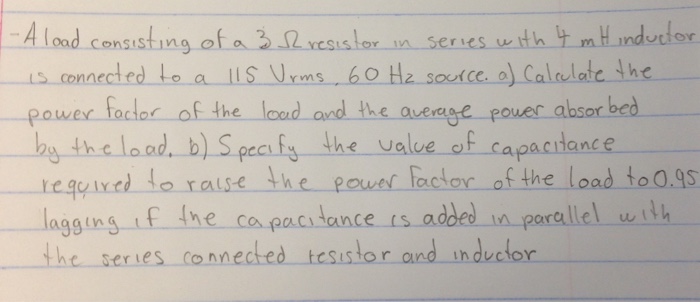 -A load consisting of a 3 Ω resistor in series with 4 mH inductor
is connected to a 115 Vrms, 60 Hz source. a) Calculate the
power factor of the load and the average power absorbed
by the load. b) Specify the value of capacitance
required to raise the power factor of the load to 0.95
lagging if the capacitance is added in parallel with
the series connected resistor and inductor